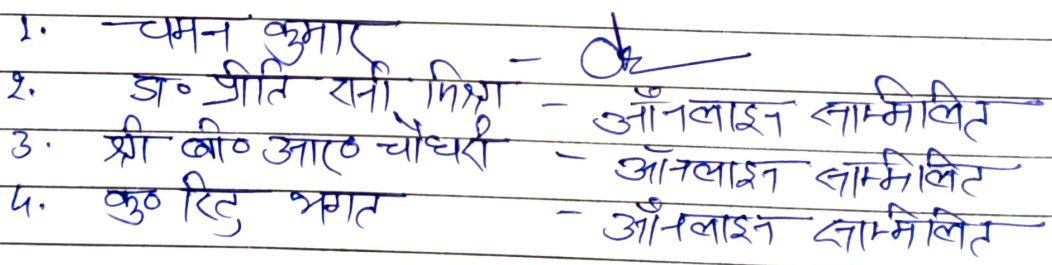 1. चमन कुमार -
2. डा० प्रीति रानी मिश्रा - ऑनलाइन सम्मिलित
3. श्री बी० आर० चौधरी - ऑनलाइन सम्मिलित
4. कु० रितु भगत - ऑनलाइन सम्मिलित